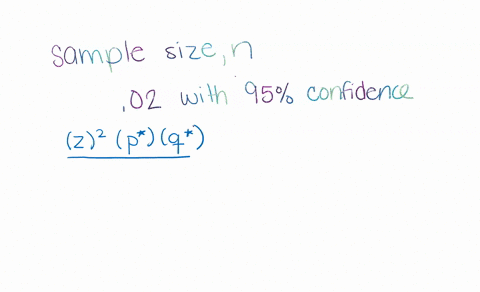 sample size, n
.02 with 95% confidence
(z)² (p*)(q*)